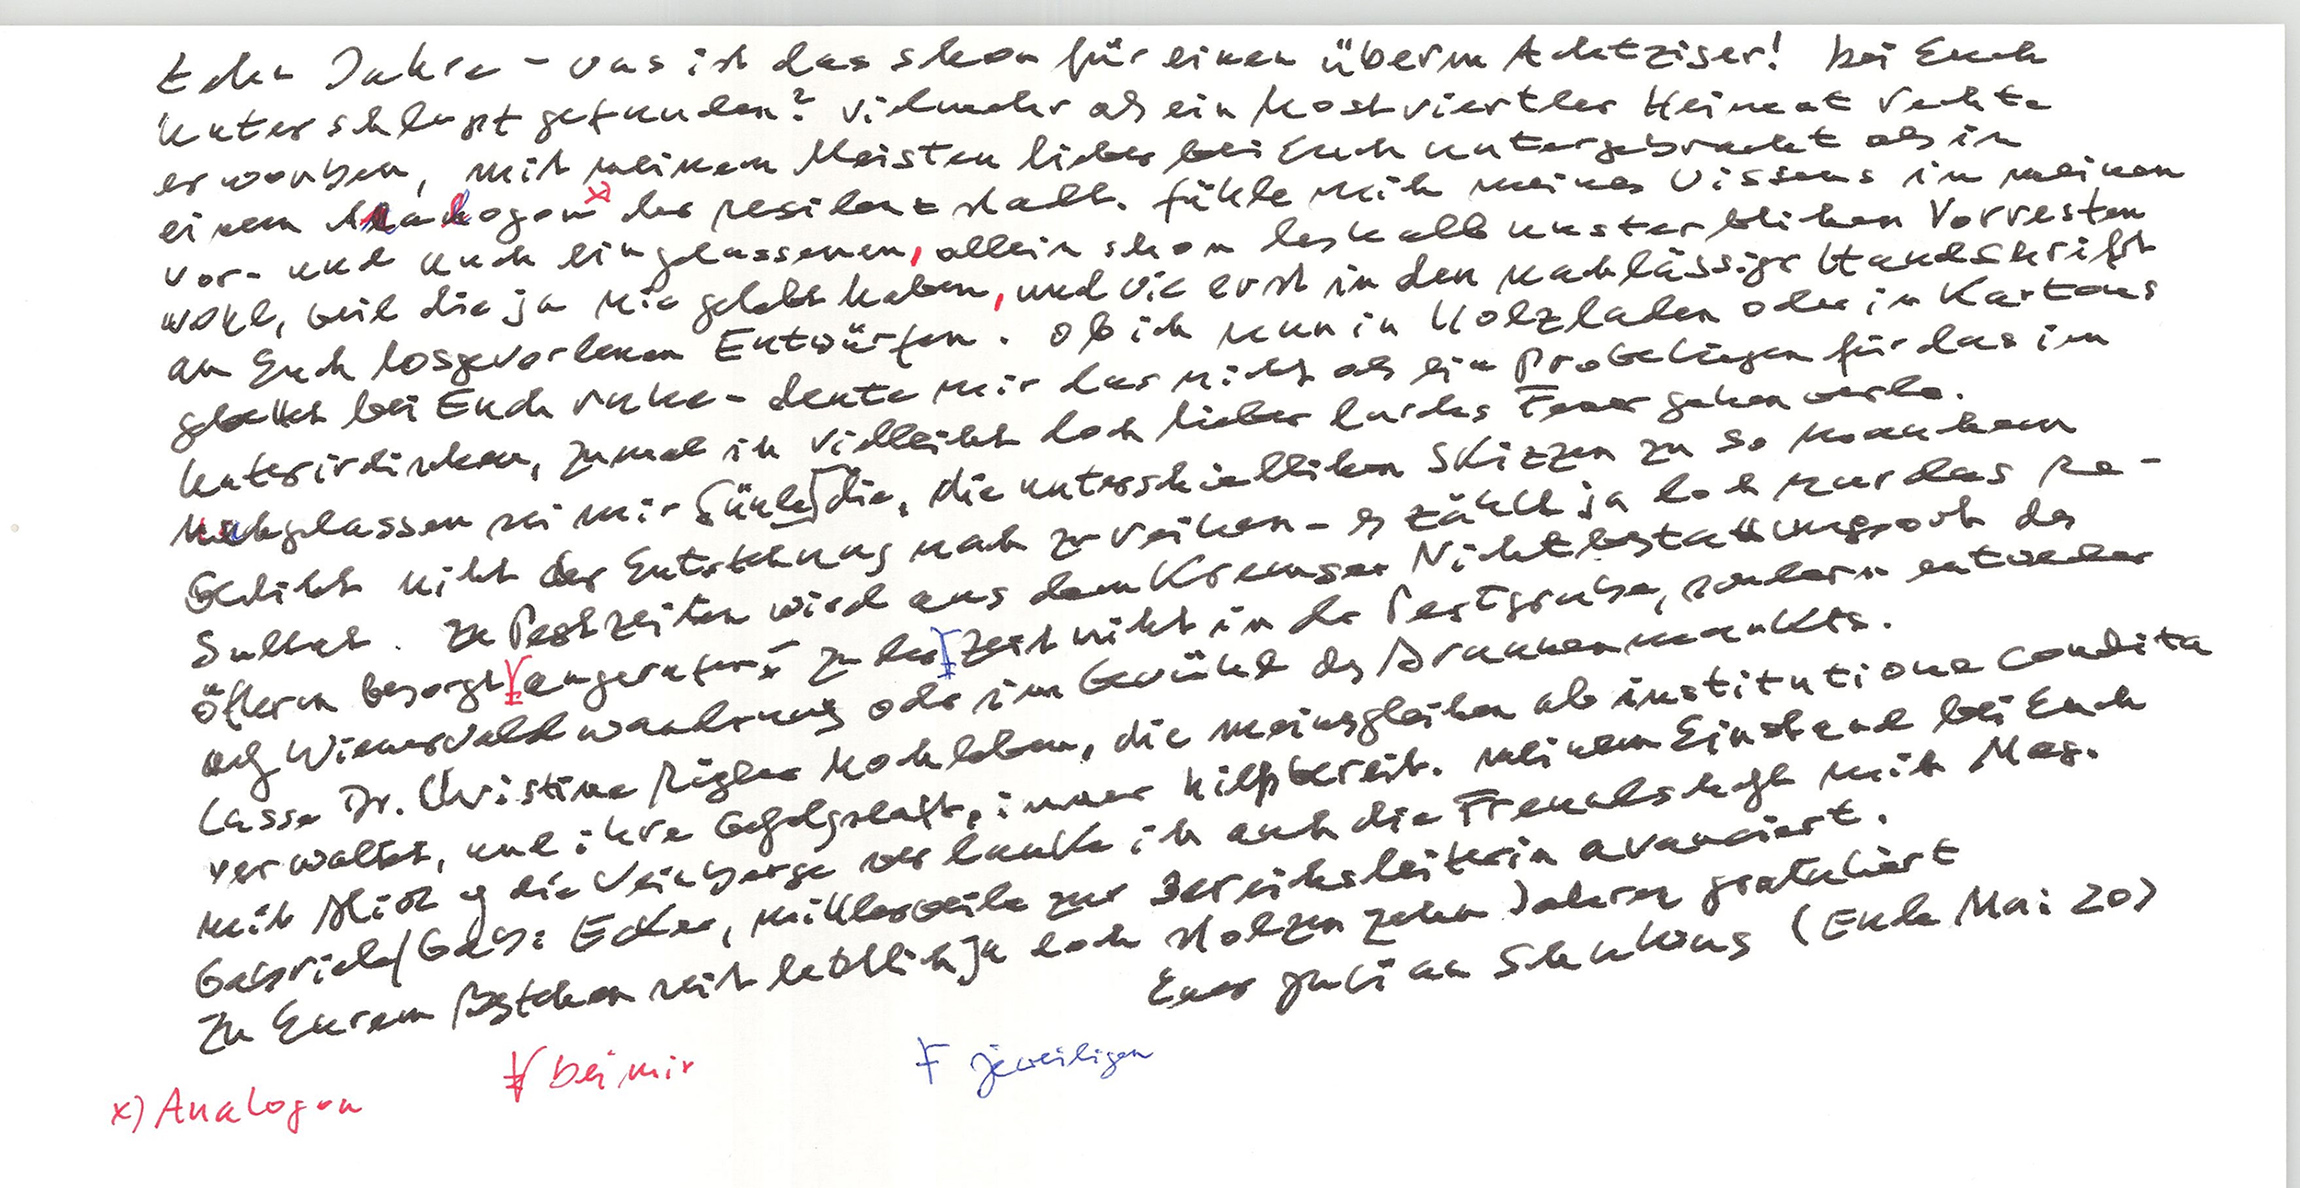 Zehn Jahre – was ist das schon für einen überm Achtziger! bei Euch
Unterschlupf gefunden? vielmehr als ein Mostviertler Heimatrechte
erworben, mit meinem Meisten lieber bei Euch untergebracht als in
einem Analogon x) der Residenzstadt. fühle mich meines Wissens in meinen
vor- und auch eingelassenen, allein schon deshalb unsterblichen Vorresten
wohl, weil die ja nie gelebt haben, und wie erst in den nachlässige Handschrift
an Euch losgewordenen Entwürfen. Ob ich nun in Holzladen oder in Kartons
gebettet bei Euch ruhe – deute mir das nicht als ein Probeliegen für das im
Unterirdischen, zumal ich vielleicht doch lieber durchs Feuer gehen werde.
Nachgelassen sei mir die, die unterschiedlichen Skizzen zu so manchem
Gedicht nicht der Entstehung nach zu reihen – es zählt ja doch nur das Re-
sultat. Zu Pestzeiten wird aus dem Kremser Nichtbestattungsort des
öftern besorgt angerufen: zu der Zeit nicht in der Pestgrube, sondern entweder
auf Wienerwaldwanderung oder im Gewühl des Brunnenmarkts.
Lasse Dr. Christine Rigler hochleben, die meinesgleichen ab institutione condita
verwaltet, und ihre Gefolgschaft, immer hilfsbereit. meinem Einstand bei Euch
mit Blick auf die Weinberge verdanke ich auch die Freundschaft mit Mag.
Gabriele/Gabi Ecker, mittlerweile zur Bereichsleiterin avanciert.
Zu Eurem Festchen seit letztlich ja doch stolzen zehn Jahren gratuliert
Euer Julian Schutting (Ende Mai 20)
x) Analogon
bei mir
jeweiligen